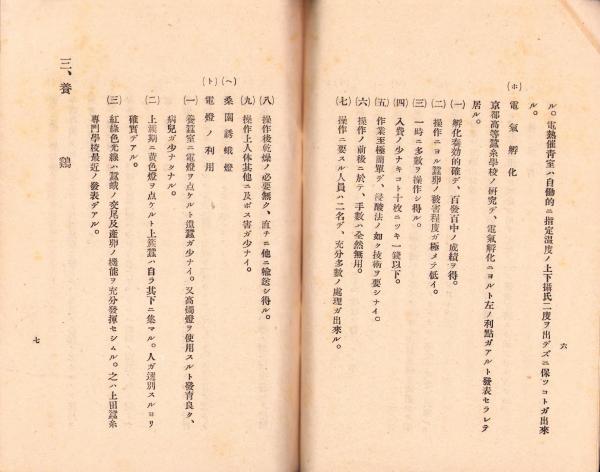 ル。電熱催靑室ハ自働的ニ指定溫度ノ上下攝氏二度ヲ出デズニ保ツコトガ出來
ル。
(ホ) 電氣孵化
京都高等蠶糸學校ノ硏究デ、電氣孵化ニヨルト左ノ利點ガアルト發表セラレテ
居ル。
(一) 孵化奏効的確デ、百發百中ノ成績ヲ得。
(二) 操作ニヨル蠶卵ノ被害程度ガ極メテ低イ。
(三) 一時ニ多數ヲ操作シ得ル。
(四) 入費ノ少ナキコト十枚ニツキ一錢以下。
(五) 作業至極簡單デ、浸酸法ノ如ク技術ヲ要シナイ。
(六) 操作ノ前後ニ於テ、手數ハ全然無用。
(七) 操作ニ要スル人員ハ二名デ、充分多數ノ處理ガ出來ル。
六
(八) 操作後乾燥ノ必要無ク、直チニ他ニ輸送シ得ル。
(九) 操作上人体其他ニ及ボス害ガ少ナイ。
(ヘ) 桑園誘蛾燈
(ト) 電燈ノ利用
(一) 養蠶室ニ電燈ヲ点ケルト遺蠶ガ少ナイ。又高燭燈ヲ使用スルト發育良ク、
病兒ガ少ナクナル。
(二) 上蔟期ニ黃色燈ヲ点ケルト上蔟蠶ハ自ラ其下ニ集マル。人ガ選別スルヨリ
確實デアル。
(三) 紅綠色光線ハ蠶蛾ノ交尾及產卵ノ機能ヲ充分發揮セシムル。之ハ上田蠶糸
專門學校最近ノ發表デアル。
三、養 鷄
七